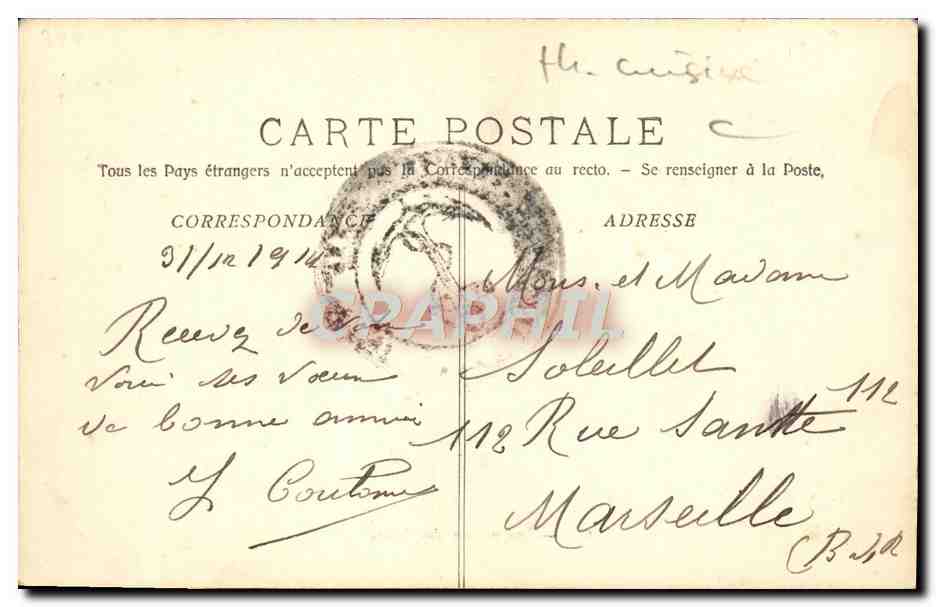 th. cuisine
CARTE POSTALE
Tous les Pays étrangers n'acceptent pas la Correspondance au recto. – Se renseigner à la Poste,
CORRESPONDANCE
31/12 1914
Recevez de
ses vœux
de bonne année
ADRESSE
Mons. et Madame
Soleillet
112
112 Rue Sainte
Marseille
(B d R
CPAPHIL